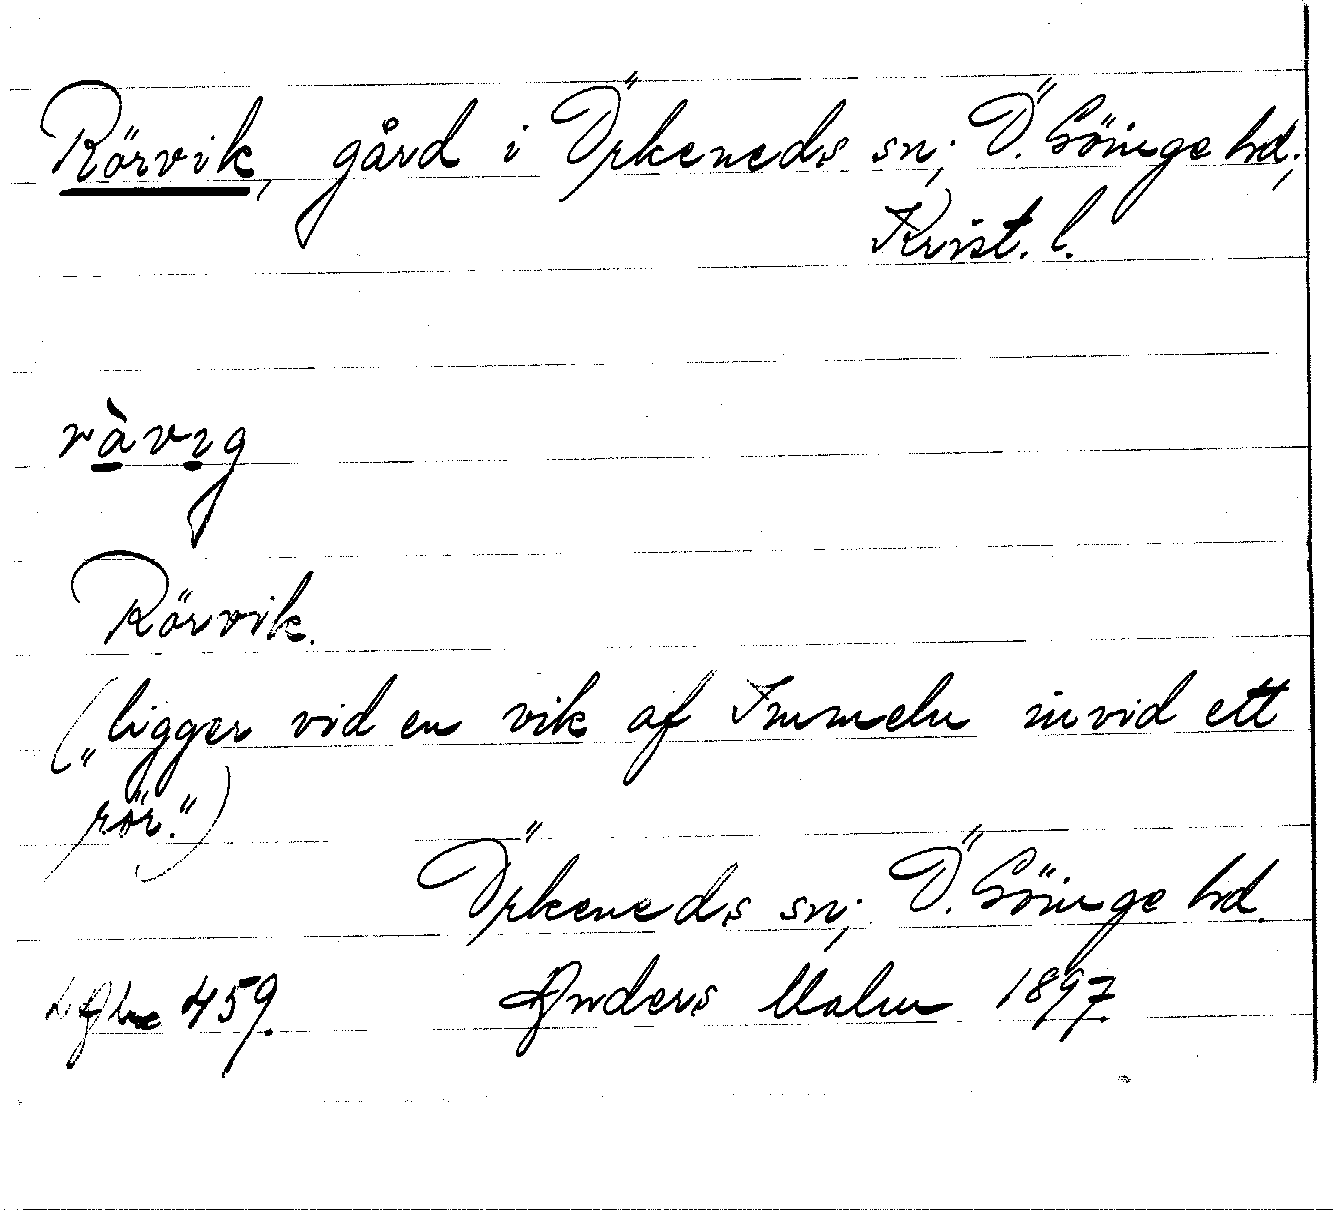 Rörvik, gård i Örkeneds sn; Ö. Göinge hd;
Krist. l.
ràvıg
Rörvik.
(„ligger vid en vik af Immeln invid ett
rör.")
Örkeneds sn; Ö. Göinge hd.
459. Anders Malm 1897.